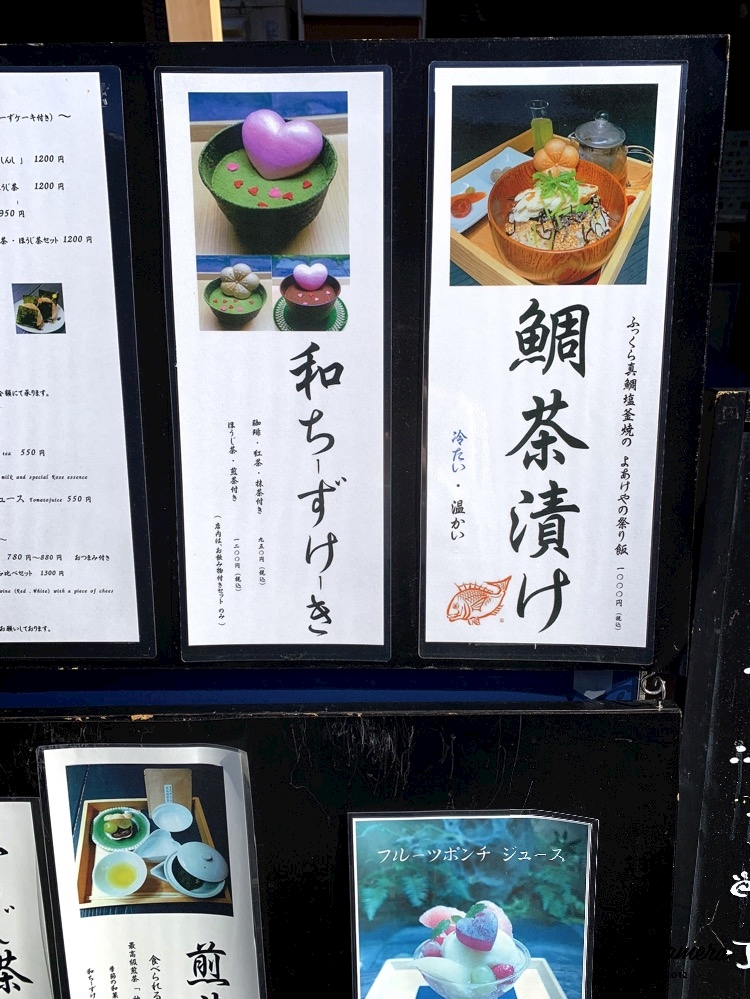 ーずケーキ付き）〜
しんし 」 1200 円
うじ茶 1200 円
950 円
茶・ほうじ茶セット 1200 円
金額にて承ります。
tea 550 円
milk and special Rose essence
ュース Tomatojuice 550 円
〜
780 円〜880 円 おつまみ付き
み比べセット 1300 円
wine (Red . White) with a piece of chees
お願いしております。
和ちーずけーき
珈琲・紅茶・抹茶付き 九五〇円（税込）
ほうじ茶・煎茶付き 一二〇〇円（税込）
（店内は、お飲み物付きセットのみ）
ふっくら真鯛塩釜焼の よあけやの祭り飯 一〇〇〇円（税込）
鯛茶漬け
冷たい・温かい
煎
食べられる
最高級煎茶「
季節の和菓
和ちーずけ
茶
フルーツポンチ ジュース